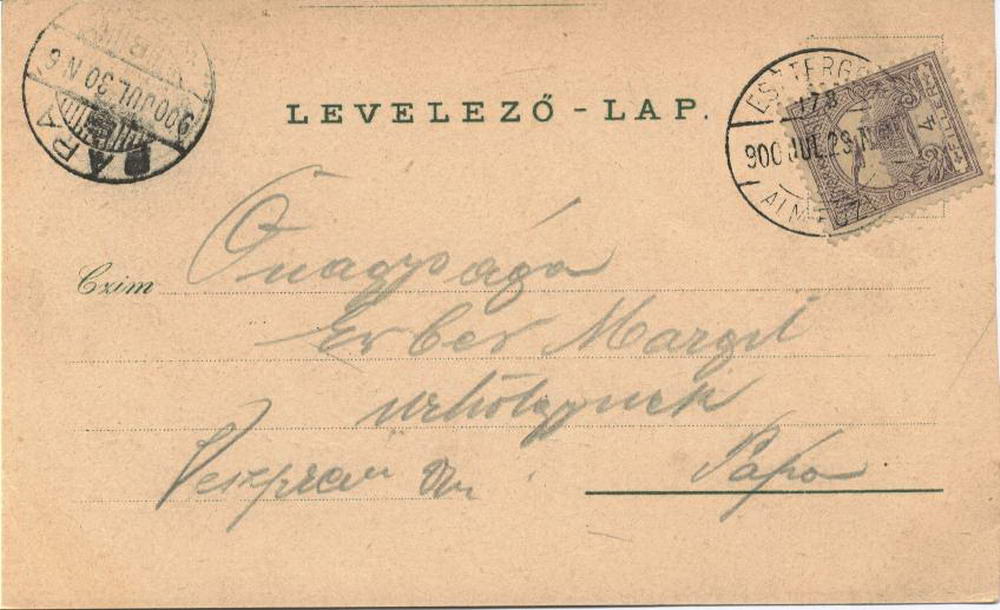 LEVELEZŐ-LAP.
ESZTERGOM
173
900 JUL. 29. N
4
FILLÉR
PÁPA
900 JUL 30 N 6
Czim Őnagysága
Erber Margit
urhölgynek
Veszprém vm. Pápa